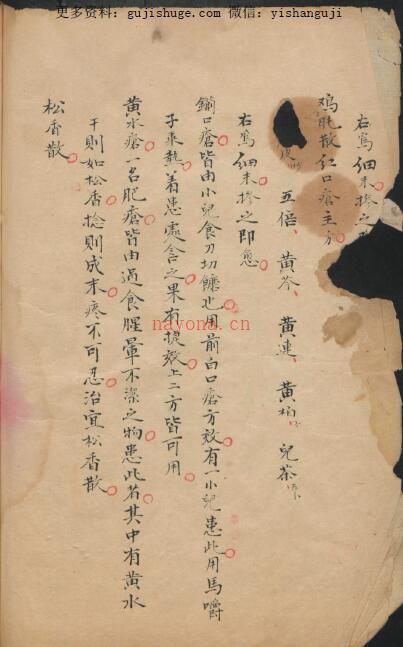 更多资料: gujishuge.com 微信: yishanguji
右為細末摻之
鸡肫散 红口瘡主方
皮 五倍、黄芩、黄連、黄柏、兒茶
右為細末摻之即愈
鎖口瘡皆由小兒食刀切麵也用前白口瘡方效有一小兒患此用馬嚼
子乘熱着患處含之果有提效上二方皆可用
黄水瘡一名肥瘡皆由過食腥暈不潔之物患此者其中有黄水
干則如松香捻則成末疼不可忍治宜松香散
松香散
nayona.cn